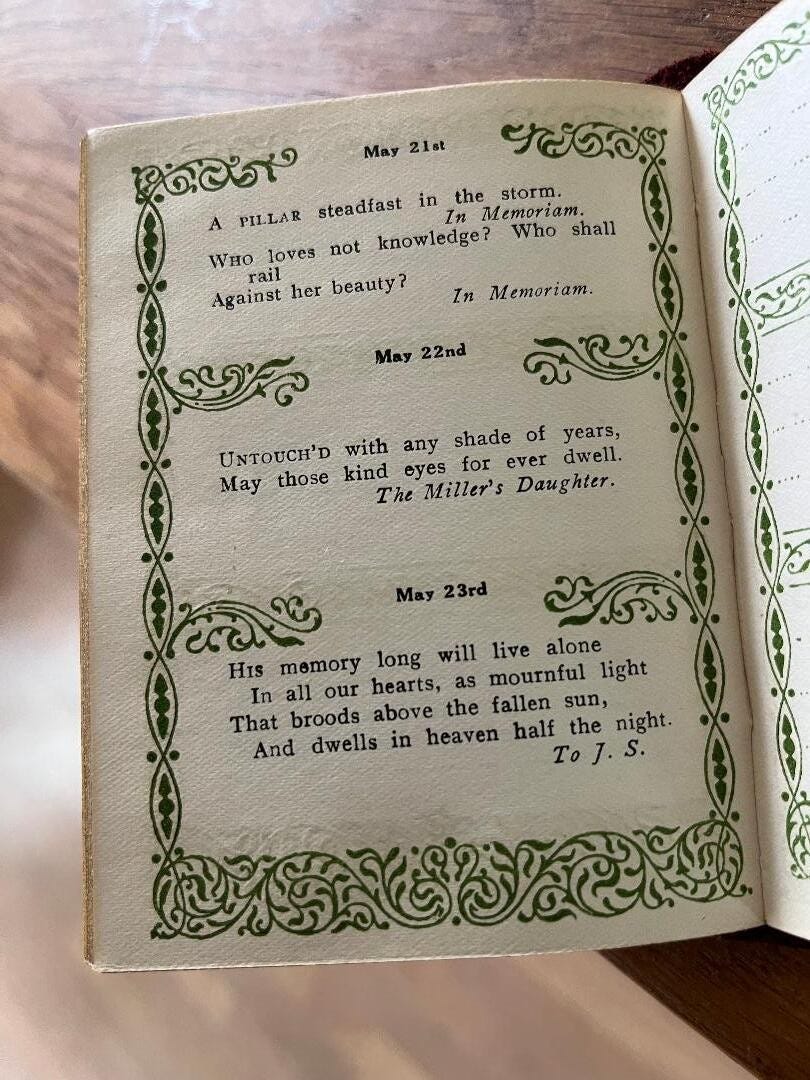 May 21st
A PILLAR steadfast in the storm.
In Memoriam.
WHO loves not knowledge? Who shall
rail
Against her beauty?
In Memoriam.
May 22nd
UNTOUCH'D with any shade of years,
May those kind eyes for ever dwell.
The Miller's Daughter.
May 23rd
HIS memory long will live alone
In all our hearts, as mournful light
That broods above the fallen sun,
And dwells in heaven half the night.
To J. S.